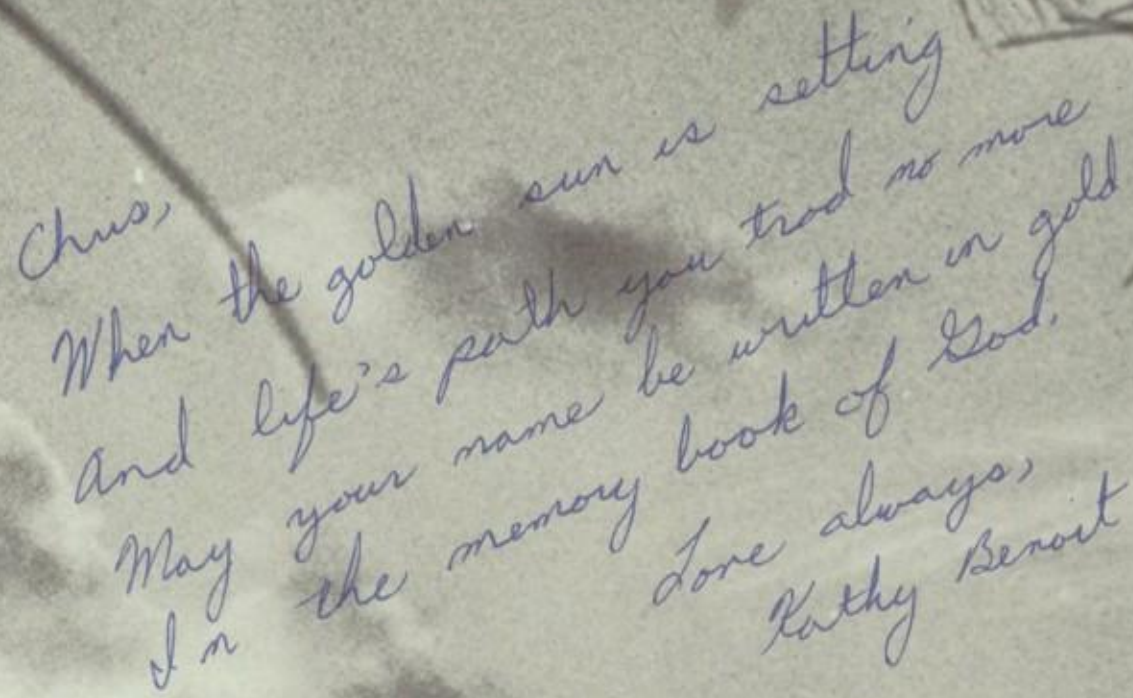 Chris,
When the golden sun is setting
And life's path you trod no more
May your name be written in gold
In the memory book of God.
Love always,
Kathy Benoit